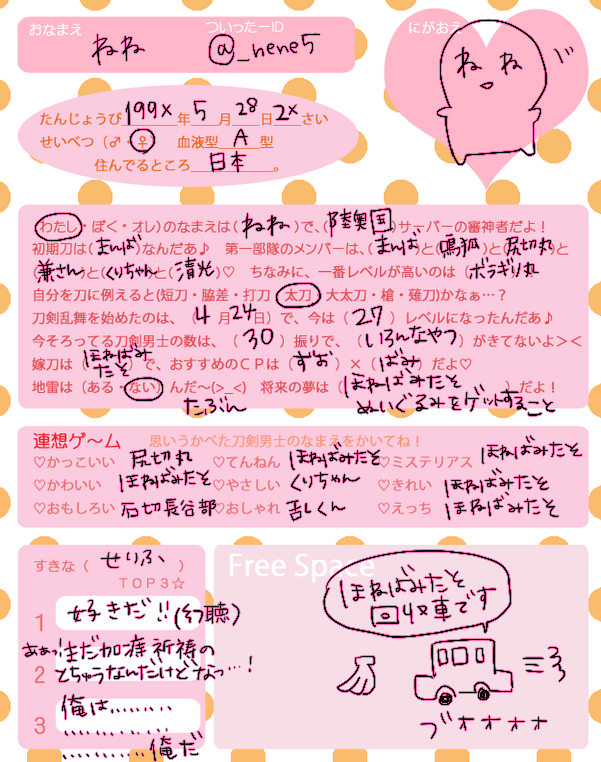 おなまえ ねね ついったーID @_nene5
にがおえ
ねね
たんじょうび 199x年5月28日 2xさい
せいべつ(♂・♀) 血液型 A 型
住んでるところ 日本 。
(わたし・ぼく・オレ)のなまえは(ねね)で、(陸奥国)サーバーの審神者だよ!
初期刀は(まんば)なんだあ♪ 第一部隊のメンバーは、(まんば)と(鳴狐)と(尻切丸)と
(兼さん)と(くりちゃん)と(清光)♡ ちなみに、一番レベルが高いのは(ボラギリ丸)
自分を刀に例えると(短刀・脇差・打刀・太刀・大太刀・槍・薙刀)かなぁ…?
刀剣乱舞を始めたのは、(4月24日)で、今は(27)レベルになったんだあ♪
今そろってる刀剣男士の数は、(30)振りで、(いろんなやつ)がきてないよ><
嫁刀は(ほねばみたそ)で、おすすめのCPは(ずお)×(ばみ)だよ♡
地雷は(ある・ない)んだ~(>_<) 将来の夢は(ほねばみたそとぬいぐるみをゲットすること)だよ!
たぶん
連想ゲ~ム 思いうかべた刀剣男士のなまえをかいてね!
♡かっこいい 尻切丸 ♡てんねん ほねばみたそ ♡ミステリアス ほねばみたそ
♡かわいい ほねばみたそ ♡やさしい くりちゃん ♡きれい ほねばみたそ
♡おもしろい 石切長谷部 ♡おしゃれ 苦しくん ♡えっち ほねばみたそ
すきな(せりふ)
TOP3☆
1 好きだ!!(幻聴)
2 ああっ!まだ加療祈祷の
とちゅうなんだけどなっ…!
3 俺は………
…………
…………俺だ
Free Space
ほねばみたそ
回収車です
ブオオオオ